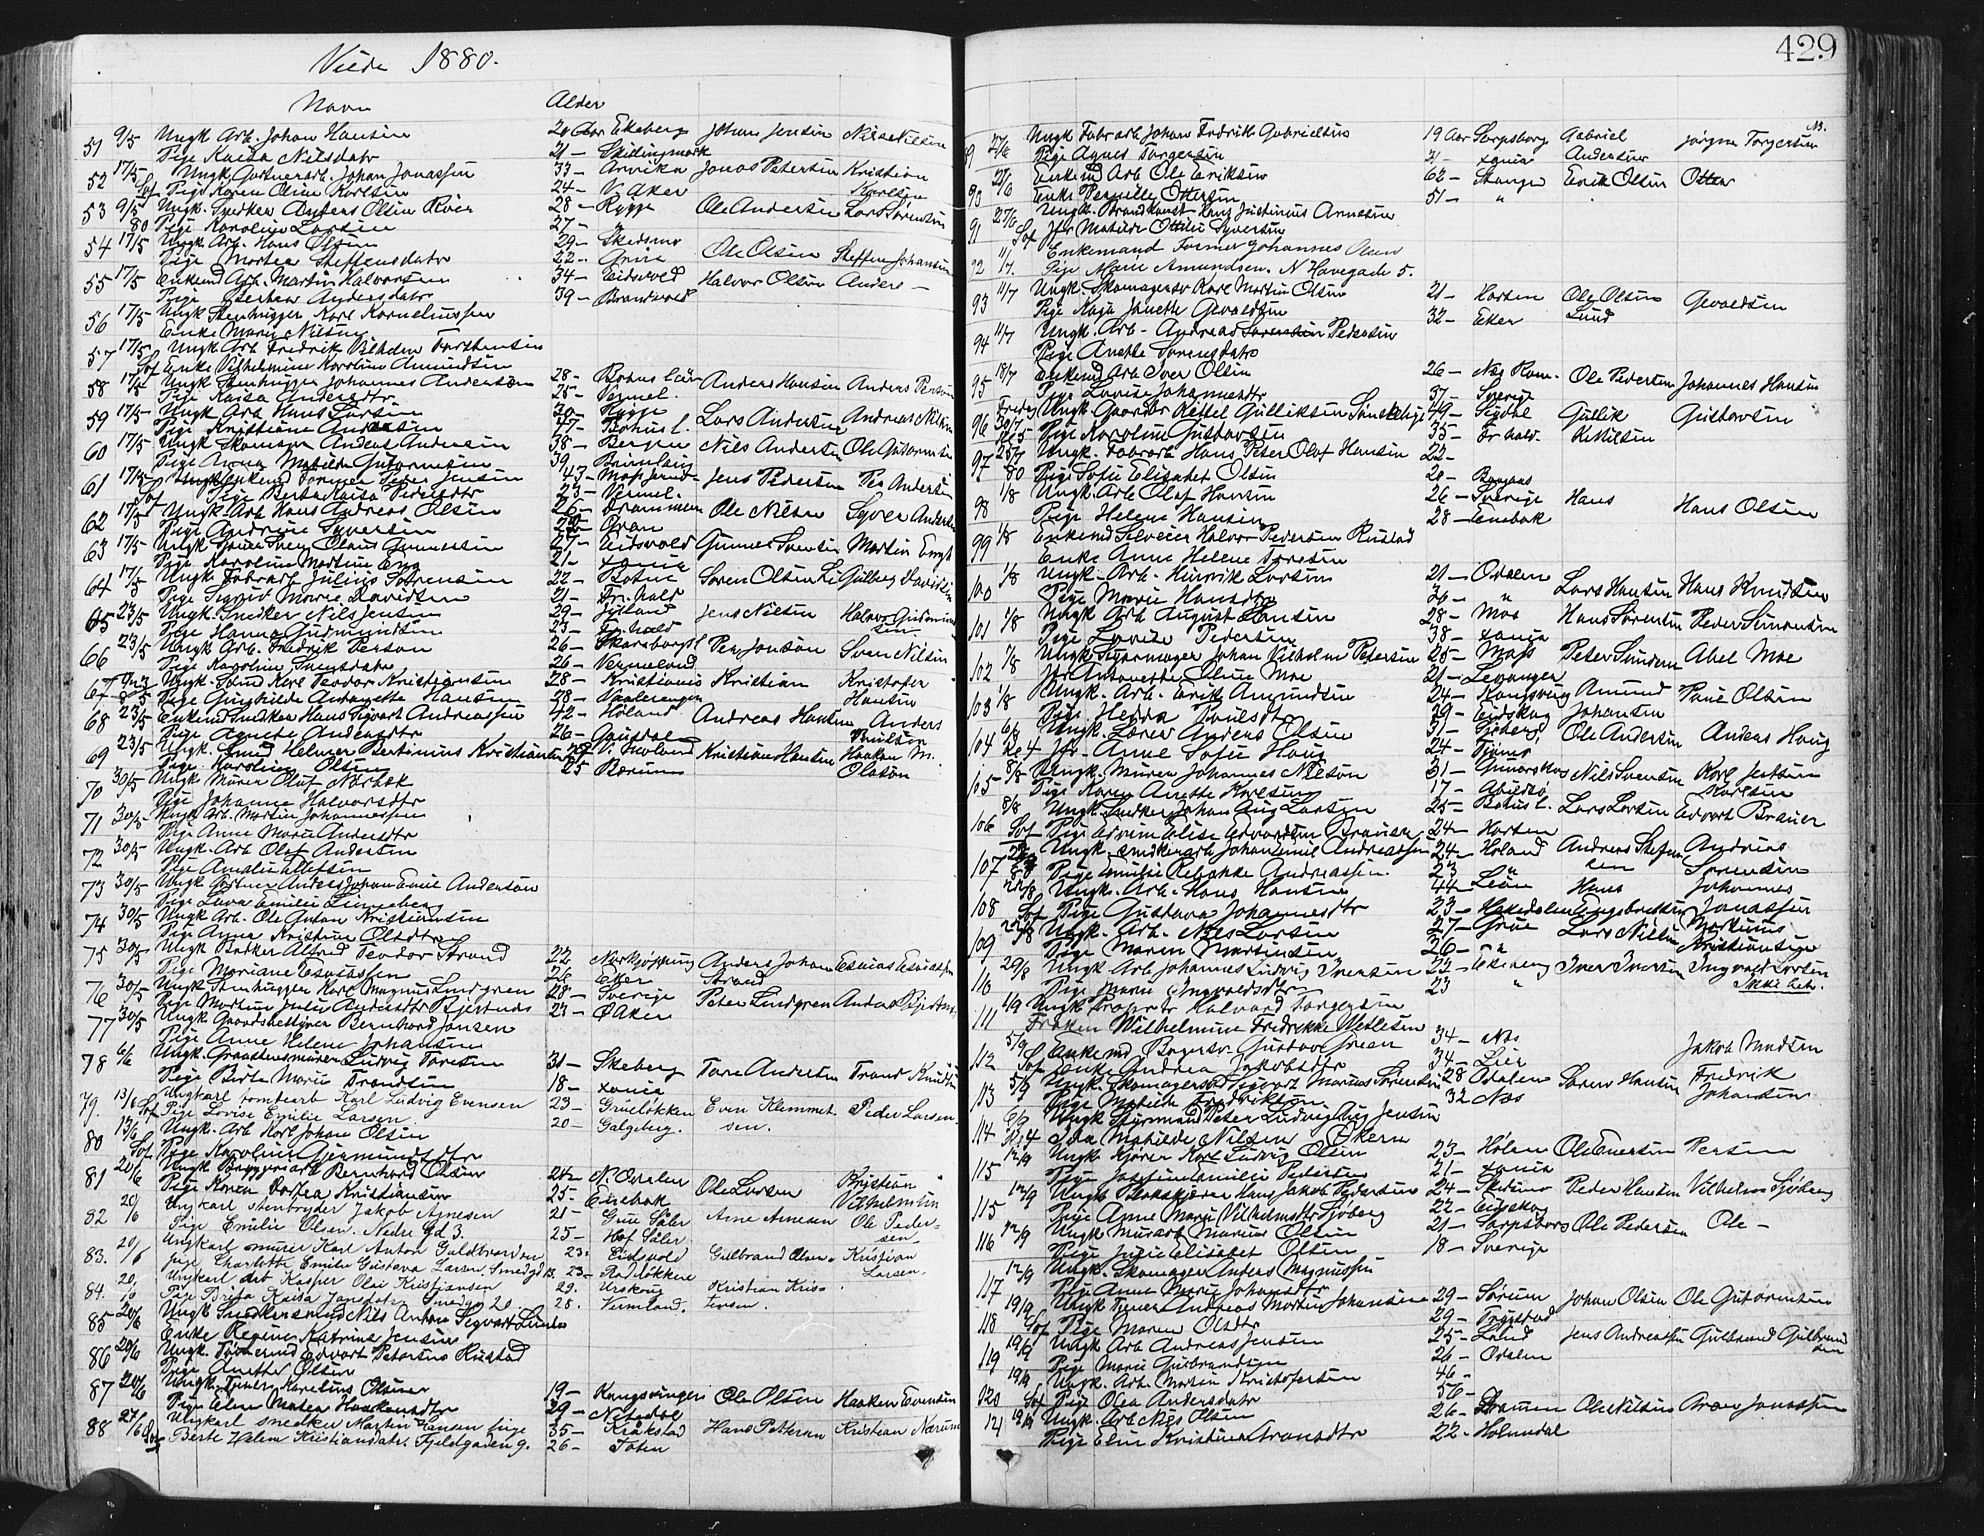 Viede 1880.
429
Navn Alder
51 9/5 Ungk Arb. Johan Hansen 20 Aar Ekeberg Johan Jensen Nils Nilsen
Pige Kaisa Nilsdatr 21 — Skillingmark
52 17/5 Ungk Gartnerarb. Johan Jonassen 33 — Arvika Jonas Petersen Kristian
Pige Karen Oline Karlsen 24 — V. Aker Karlsen
53 9/5 Ungk. Snedker Anders Olsen Røer 28 — Rygge Ole Andersen Lars Sørensen
80 Pige Karoline Larsen 27 — "
54 17/5 Ungk Arb. Hans Olsen 29 — Skedsmo Ole Olsen Steffen Johansen
Pige Mortea Steffensdatr 22 — Grue
55 17/5 Enkemd Arb. Martin Halvorsen 34 — Eidsvold Halvor Olsen Anders —
Pige Berthea Andersdatr 39 — Brandvold
56 17/5 Ungk Stenhugger Karl Korneliussen
Enke Marie Nilsen
57 17/5 Ungk Arb Fredrik Vilhelm Torstensen
Sof Enke Vilhelmine Karoline Amundsen
58 17/5 Ungk Stenhugger Johannes Andersen 28 — Bohus län Anders Hansen Anders Persson
Pige Kaisa Andersdtr 25 — Vermel.
59 17/5 Ungk Arb Hans Larsen 30 — Rygge Lars Andersen Andreas Nilsen
Pige Kristiane Andersen 47 — Bohus l.
60 17/5 Ungk Skomager Anders Andersen 38 — Bergen Nils Andersen Ole Gutormsen
Pige Anna Matilde Gutormsen 39
61 17/5 Enkemd Former Peter Jensen 47 — Jens Pedersen Per Andersen
Sof Pige Berta Kaisa Pedersdtr 23 — Vermel.
62 17/5 Ungk. Arb Hans Andreas Olsen 26 — Drammen Ole Nilsen Syver Andersen
Pige Andrine Syversen Gran
63 17/5 Ungk Sven Olaus Gunnersen 27 — Eidsvold Gunner Svensen Martin Eng
Pige Karoline Martine Eng 21 — Xania
64 17/5 Ungk Fabrarb Julius Sørensen 22 — Botne Søren Olsen Gulberg Davidsen
Pige Sigrid Marie Davidsen 21 — Fr.hald
65 23/5 Ungk. Snedker Nils Jensen 29 — Jylland Jens Nilsen Halvor Gudmundsen
Pige Hanna Gudmundsen 23 — Fr.hald
66 23/5 Ungk Arb. Fredrik Person 26 — Skaraborgsl Per Jonson Sven Nilsen
Pige Karoline Svensdatr 26 — Vermeland
67 Ungk. Smd Karl Teodor Kristiansen 28 — Kristiania Kristian Kristofer
Pige Gunhilde Antonette Hansen 28 — Vaalerengen Hansen
68 23/5 Enkemd Snedker Hans Sigvart Andreassen 42 — Høland Andreas Hansen Anders
Pige Agnete Andersdtr 26 — Gausdal
69 23/5 Ungk. Smed Helmer Bertinius Kristiansen Kristian Hansen Haakon M.
Pige Karoline Olsen 25 Bærum Olason
70 30/5 Ungk Murer Olaf Nærbek
Pige Johanne Halvorsdtr
71 30/5 Ungk Arb. Martin Johannessen
Pige Anne Marie Andersdtr
72 30/5 Ungk. Arb Olaf Andersen
Pige Amalie Ellefsen
73 30/5 Ungk Gartner Anders Johan Emil Anderson
Pige Lava Emilie Linneberg
74 30/5 Ungk Arb. Ole Anton Kristiansen
Pige Anna Kristine Olsdtr
75 30/5 Ungk Bakker Alfred Teodor Strand 22 Norkjøpping Anders Johan Esaias Esaiassen
Pige Mariane Esaiassen 26 Eker Strand
76 30/5 Ungk Stenhugger Karl Magnus Lundgren 28 — Sverige Peter Lundgren
Pige Martine Julie Andersdtr Bjertnæs 23 — Ø Aker
77 30/5 Ungk Gaardsbestyrer Bernhard Jansen
Pige Anne Helene Johansen
78 6/6 Ungk. Graastensmurer Ludvig Toresen 31 — Skeberg Tore Andersen Trond Knudsen
Pige Birte Marie Trondsen 18 — Xania
79. 13/6 Ungkarl tomtearb Karl Ludvig Evensen 23 — Grueløkken Even Klemmet- Peder Larsen.
Sof Pige Lovise Emilie Larsen 20 — Galgeberg. sen.
80 13/6 Ungk. Arb Karl Johan Olsen
Sof Pige Karoline Gjermundsdtr
81 20/6 Ungk Bryggeriarb Bernhard Olsen 24 — N. Odalen Ole Larsen Kristian
Pige Karen Dortea Kristiansen 25 — Enebak Vilhelmsen
82 20/6 Ungkarl stenbryder Jakob Arnesen 21 — Grue Sóler Arne Arnesen Ole Peder-
Pige Emilie Olsen. Nedre Gd 3. 25 — Hof Sóler sen
83. 20/6 Ungkarl murer Karl Anton Guldbrandsen 23. Eidsvold Gulbrand Olsen. Kristian
Pige Charlotte Emilie Gustava Larsen. Smedgd 13. 23 — Rodeløkken Larsen.
84. 20/6 Ungkarl arb Kasper Olai Kristiansen 29. Urskoug Kristian Kris-
Pige Brita Kaisa Jansdatr Smedgd 20 28. Vermland. tensen.
85 20/6 Ungk Snedkersvend Nils Anton Sigvart Lunder
Enke Regine Katrine Jensen
86 20/6 Ungk. Edvart Petersius Rustad
Pige Anette Olsen
87 20/6 Ungk. Karelius Olsen 19 — Kongsvinger Ole Olsen Haaken Evensen
Pige Elen Matea Haakensdtr 29 — Nitedal
88 27/6 Ungkarl snedker Martin Hansen Linge 35 — Kraakstad Hans Pettersen Kristian Narum
Berte Helene Kristiansdatr. Fjeldgaden 9. 26 — Toten
89 27/6 Ungk Fabrarb Johan Fredrik Gabrielsen 19 Aar Sarpsborg Gabriel Jørgen Torgersen
Pige Agnes Torgersen 21 — Xania Andersen
90 Enkemd Arb Ole Eriksen 62 — Stange Erik Olsen Otter
Enke Pernille Ottersen 51 — "
91 27/6 Ungk. Brandkonst Hans Justinius Arnesen
Sof Jfr Matilde Ottilie Syversen
92 11/7. Enkemand Former Johannes Olsen
Pige Marie Amundsen. N Havegade 5.
93 11/7 Ungk. Skomagersv Karl Martin Olsen 21 — Horten Ole Olsen Gevaldsen
Pige Kaja Janette Gevaldsen 32 — Eker Lund
94 11/7 Ungk. Arb. Andreas Sørensen Pedersen
Pige Anette Sørensdatr
95 18/7 Enkemd Arb Iver Olsen 26 — Næs Rom. Ole Pedersen Johannes Hansen
Pige Lovise Johannesdtr 37 — Sverige
96 Ungk Gaardbr Kittel Gulliksen 49 — Sigdal Gullik Gustavsen
Pige Karoline Gustavsen 35 — Fr.hald. Kittilsen
97 25/7 Ungk. Fabrarb Hans Peter Olaf Hansen 22 —
80 Pige Sofie Elisabet Olsen 20 —
98 1/8 Ungk Arb Olaf Hansen 26 — Sverige Hans Hans Olsen
Pige Helene Hansen 28 — Enebak
99 1/8 Enkemd Halvor Pedersen Rustad
Enke Anne Helene Toresen
100 1/8 Ungk. Arb. Hinrik Larsen 21 — Odalen Lars Hansen Hans Knudsen
Pige Marie Hansdtr 36 — "
101 1/8 Ungk Arb August Hansen 28 — Mos Hans Sørensen Peder Simonsen
Pige Lovise Pedersen 38 — Xania
102 1/8 Ungk Sigarmager Johan Vilhelm Petersen 25 — Moss Peter Abel Moe
Jfr Antonette Oline Moe 21 — Levanger
103 1/8 Ungk. Arb. Erik Amundsen 24 — Kongsberg Amund Paul Olsen
Pige Hedda Paulsdtr 29 — Eidskog Johansen
104 6/8 Ungk. Lærer Anders Olsen 31 — Ole Andersen Anders Haug
Jfr. Anne Sofie Haug 24 —
105 8/8 Ungk. Murer Johannes Nilson 31 — Nils Svensen Karl
Pige Karen Anette Karlsen 17 — Karlsen
106 8/8 Ungk Snedker Johan Aug Larsen 25 — Bohus l. Lars Larsen Edvart Brauer
Sof Pige Elise Edvardsen 24 — Horten
107 Ungk. Snedkerarb Johan Emil Andreassen 24 — Høland Andreas Andreas
Pige Emilie Rebekke Andreassen. 23 " sen Sørensen
108 Ungk. Arb. Hans Hansen 44 — Hans Johannes
Sof Pige Gustava Johannesdtr 23 — Hakedalen Engebretsen Jonassen
109 Ungk. Arb. Nils Larsen 27 — Grue Lars Nilsen Martinius
Pige Maren Martinsen 26 — " Kristiansen
110 29/8 Ungk Arb Johannes Ludvig Iversen 22 — Ekeberg Iver Iversen Ingvald Larsen
Pige Marie Ingvaldsdtr 23 " Ikke Aeb.
111 1/9 Ungk Halvard Torgersen
Frøken Wilhelmine Fredrikke Nielsen
112 5/9 Enkemd Bagersv. Gustav Green 34 — Næs Jakob Madsen
Sof Enke Andrea Jakobsdtr 34 — Lier
113 5/9 Ungk. Skomagersv Sigvart Marius Sørensen 28 Odalen Søren Hansen Fredrik
Pige Matilde Fredriksen 32 Næs Johansen
114 6/9 Ungk Styrmand Peter Ludvig Aug Jensen
Ida Matilde Nilsen Økern
115 12/9 Ungk Kjører Karl Ludvig Olsen 23 — Hølen Ole Evensen Persen
Pige Josefine Emilie Pedersen 21 — Xania
115 12/9 Ungk Blokskjærer Hans Jakob Pedersen 24 — Skedsmo Peder Hansen Vilhelm Sjöberg
Pige Anne Marie Vilhelmsdtr Sjøberg 22 — Eidskog
116 12/9 Ungk Murarb Marius Olsen 21 — Sarpsborg Ole Pedersen Ole —
Pige Julie Elisabet Olsen 18 — Sverige
117 12/9 Ungk. Skomager Anders Magnussen
Pige Anne Marie Johansdtr
118 19/9 Ungk Andreas Martin Johansen 29 — Sørum Johan Olsen Ole Gutormsen
Sof Pige Maren Olsdtr 29 — Trygstad
119 19/9 Ungk Arb Andreas Jensen 25 — Land Jens Andreassen Gulbrand Gulbrandsen
Pige Marie Gulbrandsen 26 — Odalen
120 19/9 Ungk. Arb. Martin Kristofersen 46 —
Sof Pige Olea Andersdatr 56 —
121 19/9 Ungk. Arb Nils Olsen 26 — Ole Nilsen Aron Jonassen
Pige Elin Kristine Aronsdtr 22 — Holmedal